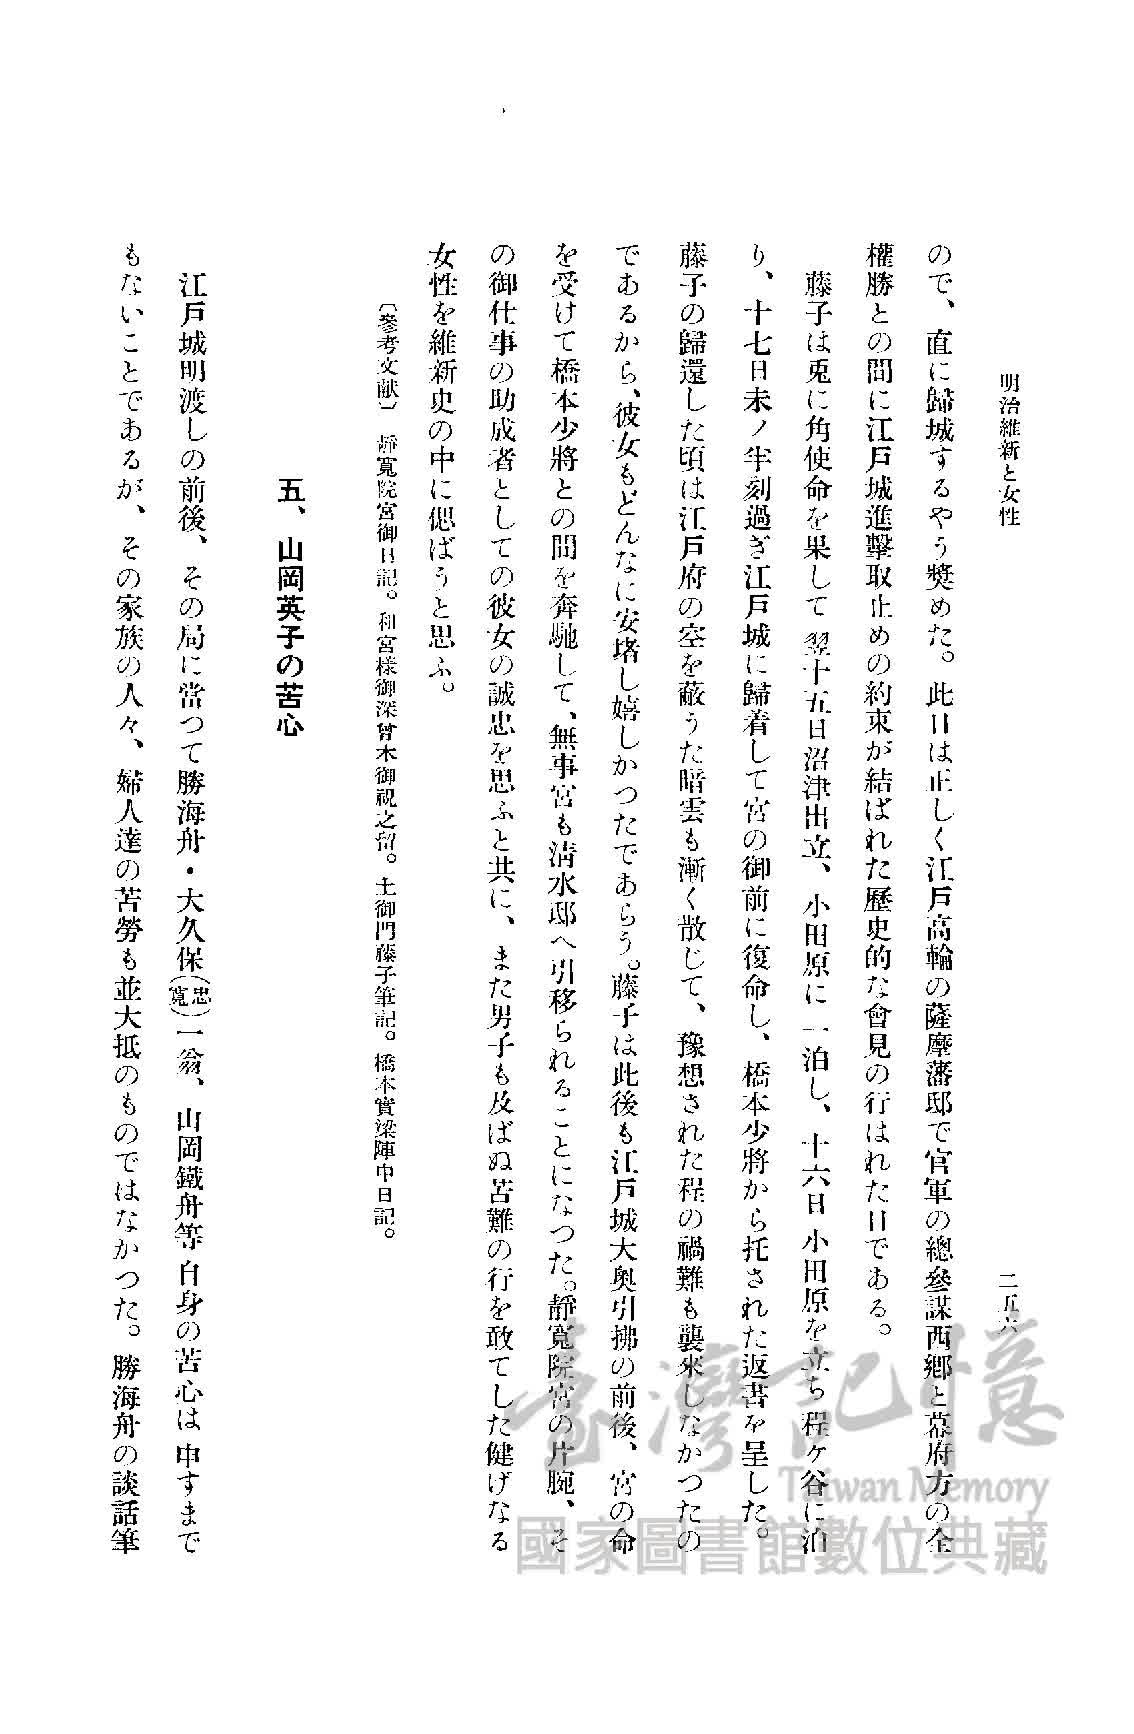 明治維新と女性
二五六
ので、直に歸城するやう奬めた。此日は正しく江戸高輪の薩摩藩邸で官軍の總參謀西郷と幕府方の全
權勝との間に江戸城進擊取止めの約束が結ばれた歷史的な會見の行はれた日である。
藤子は兎に角使命を果して翌十五日沼津出立、小田原に一泊し、十六日小田原を立ち程ケ谷に泊
り、十七日未ノ半刻過ぎ江戸城に歸着して宮の御前に復命し、橋本少將から托された返書を呈した。
藤子の歸還した頃は江戸府の空を蔽うた暗雲も漸く散じて、豫想された程の禍難も襲來しなかつたの
であるから、彼女もどんなに安堵し嬉しかつたであらう。藤子は此後も江戸城大奧引拂の前後、宮の命
を受けて橋本少將との間を奔馳して、無事宮も淸水邸へ引移られることになつた。靜寬院宮の片腕、そ
の御仕事の助成者としての彼女の誠忠を思ふと共に、また男子も及ばぬ苦難の行を敢てした健げなる
女性を維新史の中に偲ばうと思ふ。
〔參考文献〕 靜寬院宮御日記。和宮樣御深曾木御視之留。土御門藤子筆記。橋本實梁陣中日記。
五、山岡英子の苦心
江戸城明渡しの前後、その局に當つて勝海舟・大久保(忠寬)一翁、山岡鐵舟等自身の苦心は申すまで
もないことであるが、その家族の人々、婦人達の苦勞も並大抵のものではなかつた。勝海舟の談話筆
臺灣記憶
Taiwan Memory
國家圖書館數位典藏